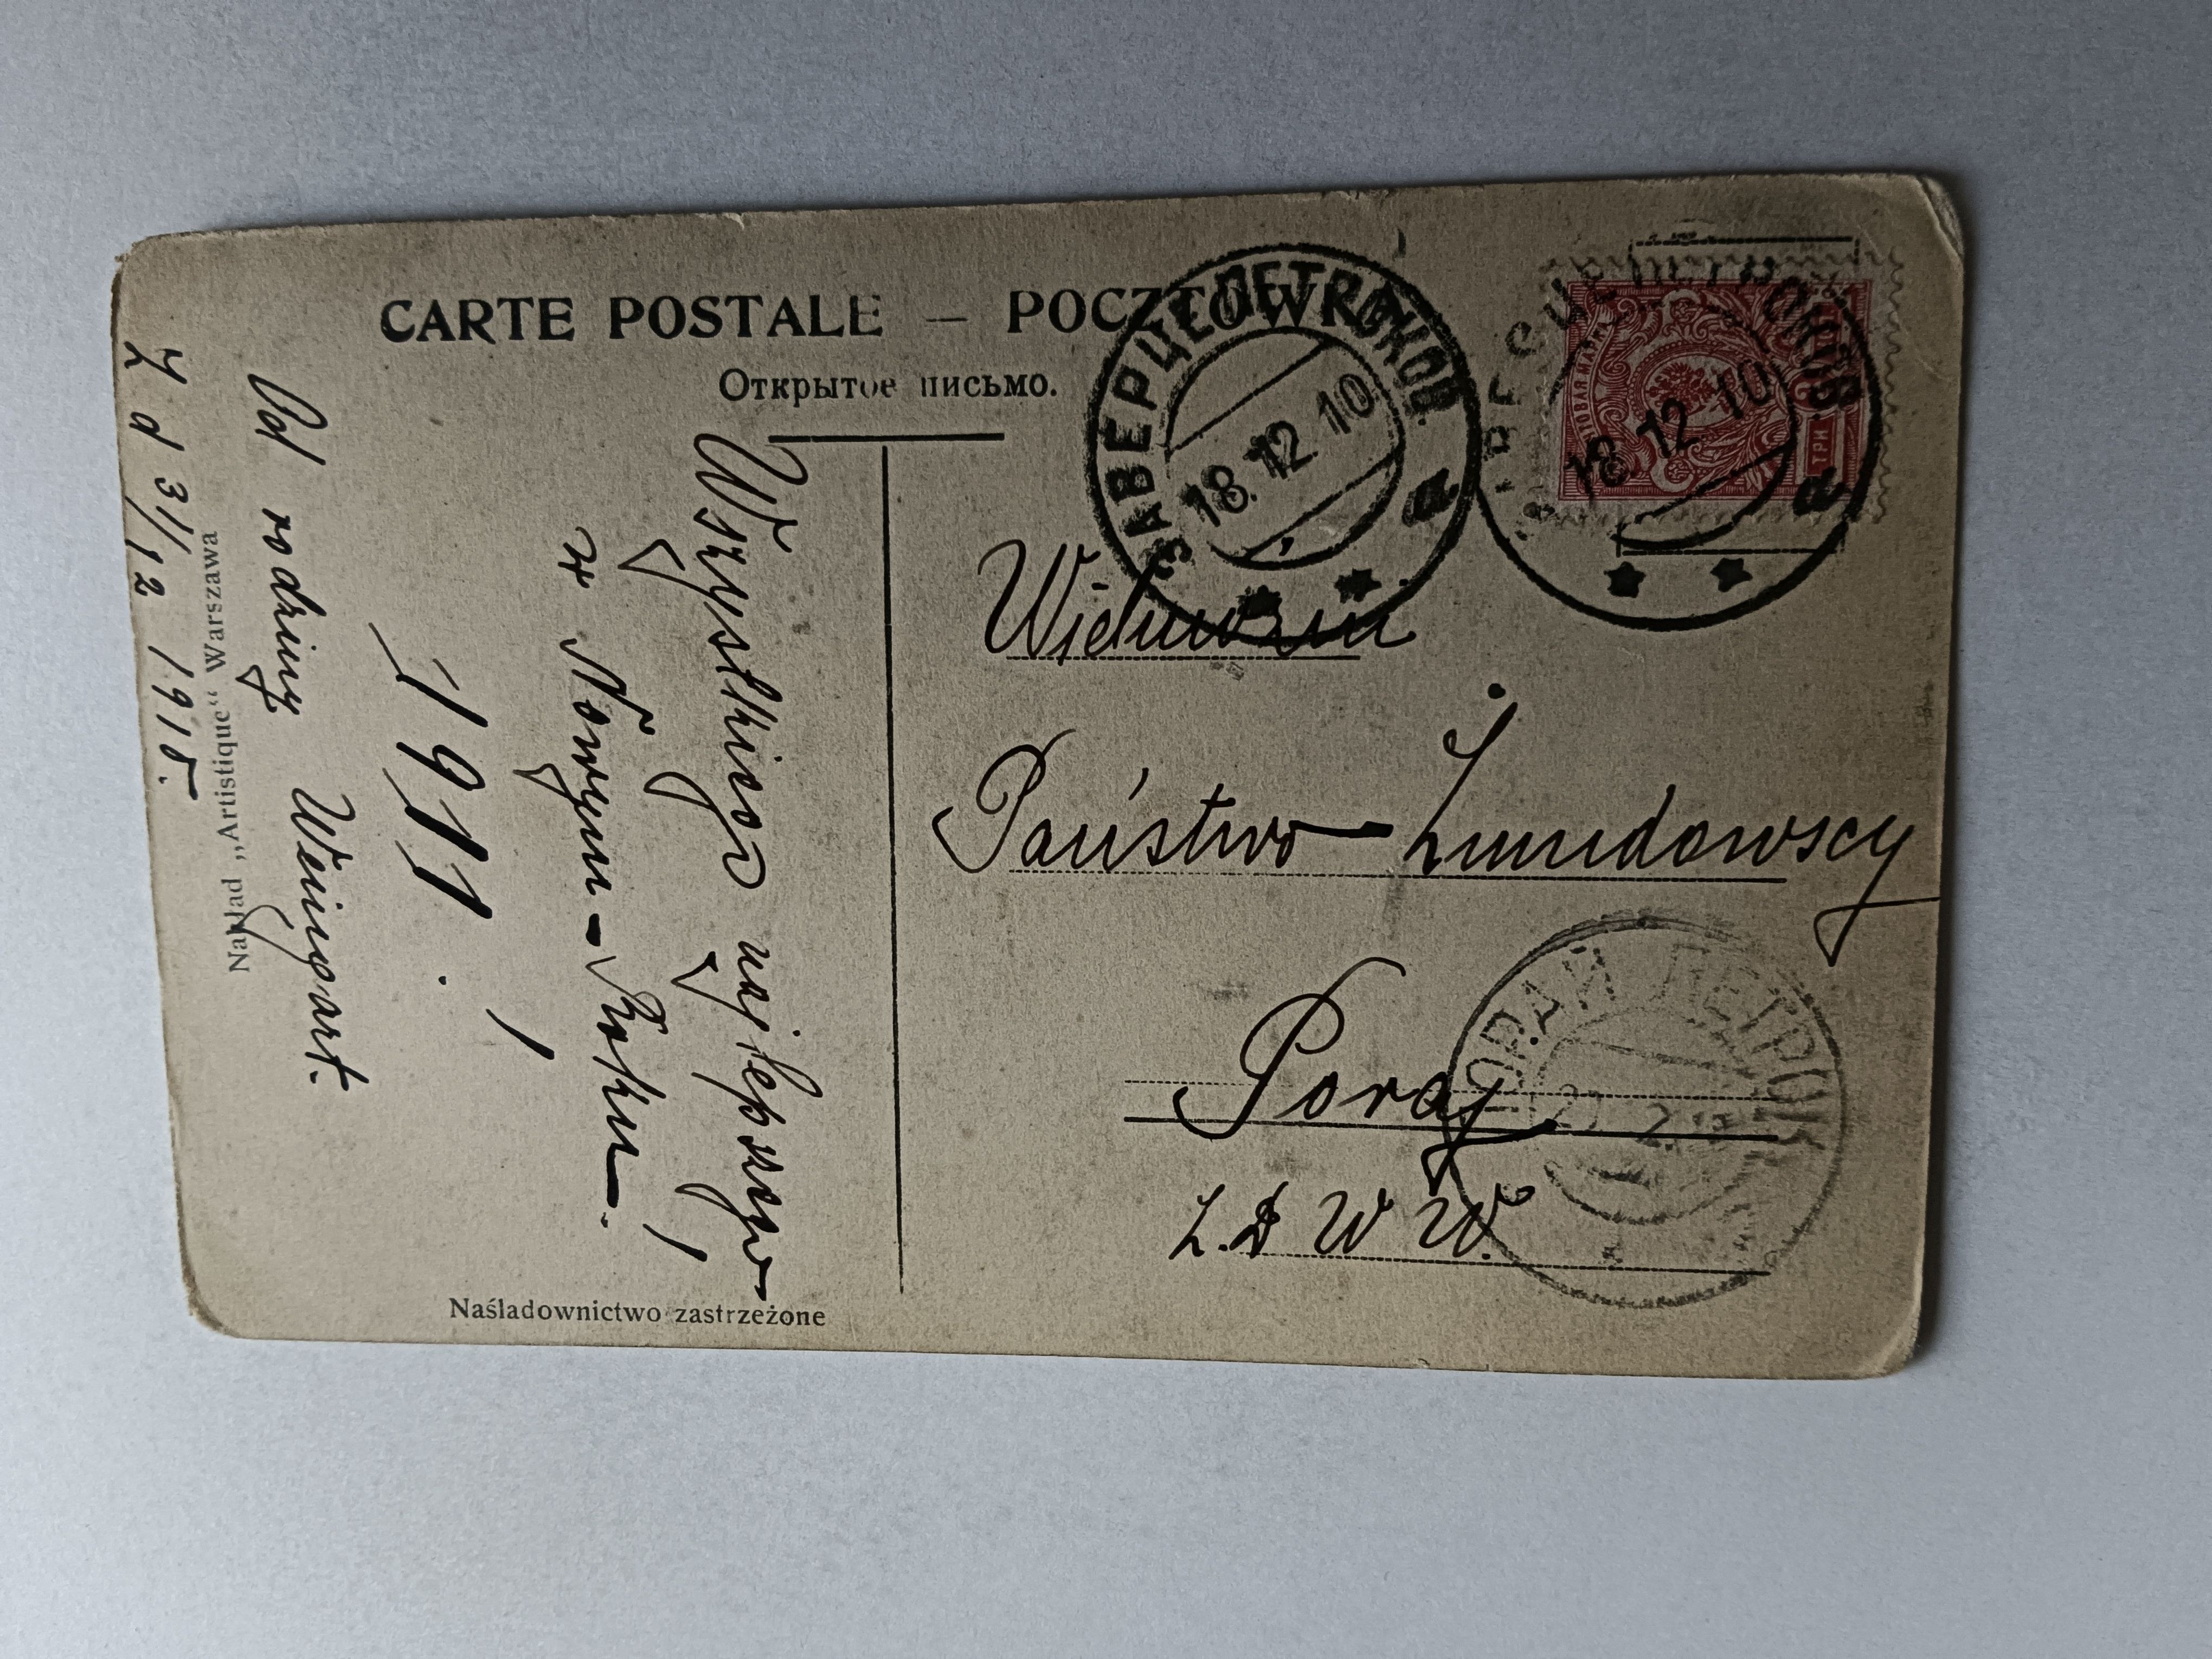 CARTE POSTALE — POCZTÓWKA
Открытое письмо.
ЗАВЕРЦЕ ПЕТРОКОВ.
18.12 10
а
ПЕТРОКОВ
18.12 10
а
ТРИ
Wszystkiego najlepszego
w Nowym-Roku.
1911.
Od rodziny Weingart.
Z d 31/12 1910.
Nakład „Artistique“ Warszawa
Naśladownictwo zastrzeżone
Państwo-Żmudowscy
Poraj
Ż.D W W.
ПОРАЙ ПЕТРОК